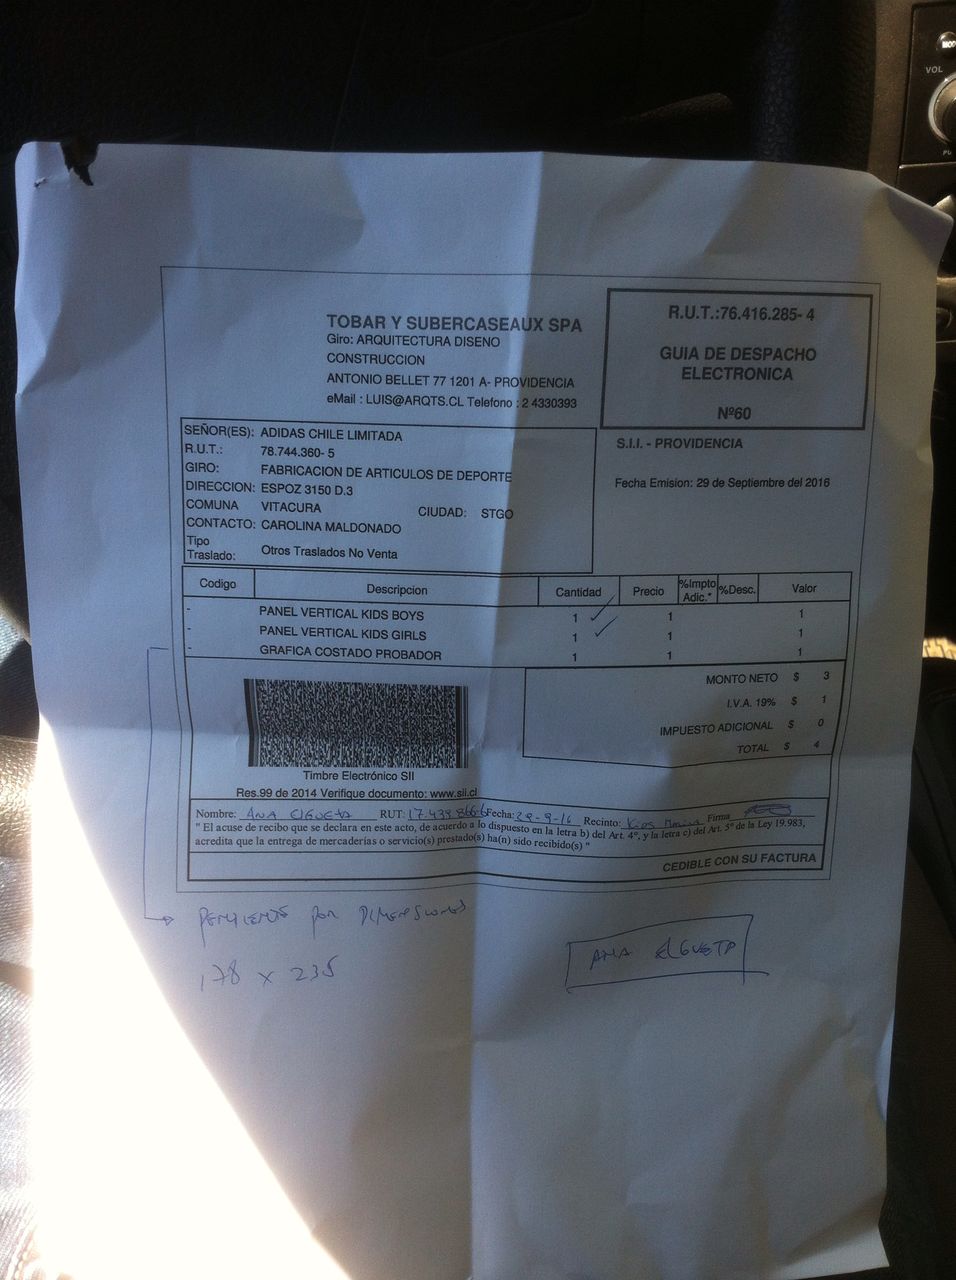 MOD
VOL
PU
TOBAR Y SUBERCASEAUX SPA
Giro: ARQUITECTURA DISENO
CONSTRUCCION
ANTONIO BELLET 77 1201 A- PROVIDENCIA
eMail : LUIS@ARQTS.CL Telefono : 2 4330393
R.U.T.:76.416.285- 4
GUIA DE DESPACHO
ELECTRONICA
Nº60
S.I.I. - PROVIDENCIA
Fecha Emision: 29 de Septiembre del 2016
SEÑOR(ES): ADIDAS CHILE LIMITADA
R.U.T.: 78.744.360- 5
GIRO: FABRICACION DE ARTICULOS DE DEPORTE
DIRECCION: ESPOZ 3150 D.3
COMUNA VITACURA CIUDAD: STGO
CONTACTO: CAROLINA MALDONADO
Tipo
Traslado: Otros Traslados No Venta
Codigo Descripcion Cantidad Precio %Impto Adic.* %Desc. Valor
- PANEL VERTICAL KIDS BOYS 1 1 1
- PANEL VERTICAL KIDS GIRLS 1 1 1
- GRAFICA COSTADO PROBADOR 1 1 1
MONTO NETO $ 3
I.V.A. 19% $ 1
IMPUESTO ADICIONAL $ 0
TOTAL $ 4
Timbre Electrónico SII
Res.99 de 2014 Verifique documento: www.sii.cl
Nombre: ANA ELGUETA RUT: 17.439.866-6 Fecha: 29-9-16 Recinto: Firma
" El acuse de recibo que se declara en este acto, de acuerdo a lo dispuesto en la letra b) del Art. 4º, y la letra c) del Art. 5º de la Ley 19.983,
acredita que la entrega de mercaderías o servicio(s) prestado(s) ha(n) sido recibido(s) "
CEDIBLE CON SU FACTURA
PENDIENTE POR DIMENSIONES
178 x 235
ANA ELGUETA